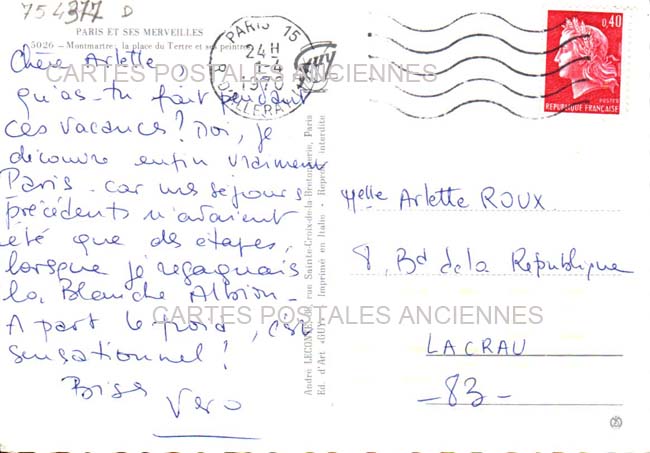 754377 D
PARIS ET SES MERVEILLES
5026 - Montmartre : la place du Tertre et ses peintres
Chère Arlette,
qu'as-tu fait pendant
ces vacances? Moi, je
découvre enfin vraiment
Paris. car mes séjours
précédents n'avaient
été que des étapes,
lorsque je regagnais
la Blanche Albion -
A part le froid, c'est
sensationnel!
Bises
Vero
PARIS 15
24 H
1-4
1970
GUY
André LECONTE, rue Sainte-Croix-de-la-Bretonnerie, Paris
Ed. d'Art «GUY» - Imprimé en Italie - Reproduction interdite
0,40
POSTES
REPUBLIQUE FRANÇAISE
Melle Arlette ROUX
8, Bd de la République
LA CRAU
-83-
CARTES POSTALES ANCIENNES
CARTES POSTALES ANCIENNES